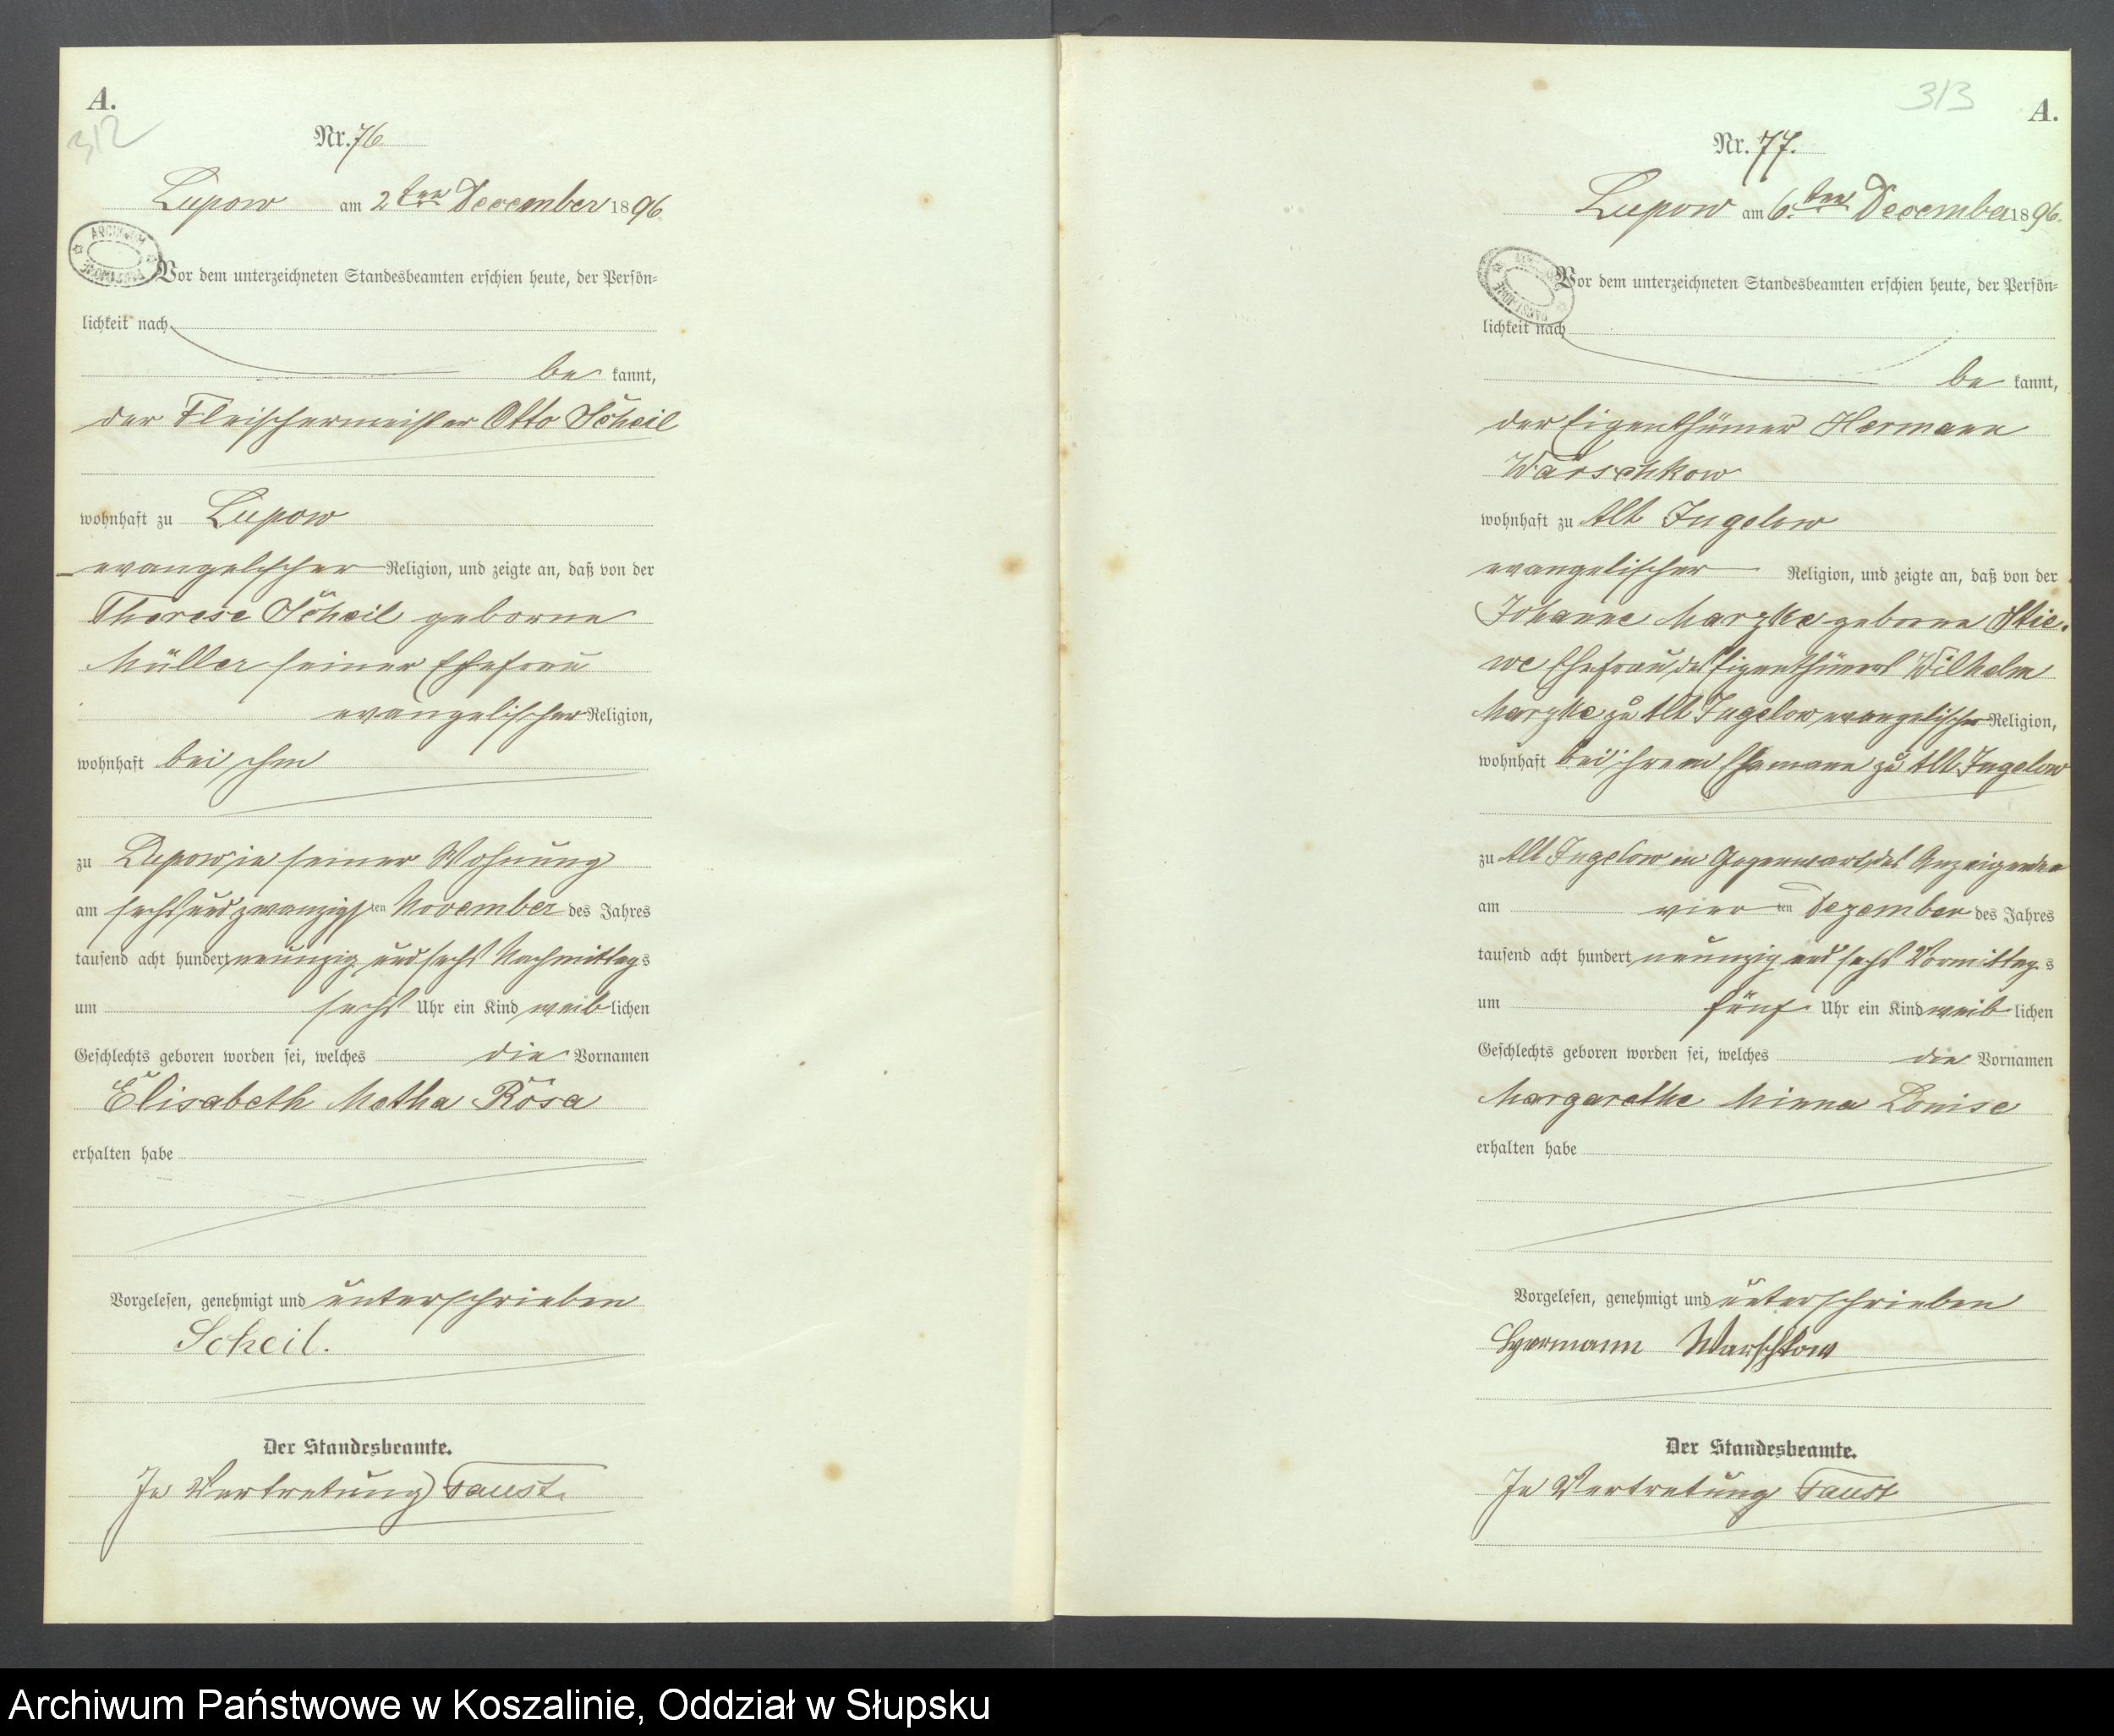 A.
312
Nr. 76
Lupow am 2ten December 1896
ARCHIWUM
Vor dem unterzeichneten Standesbeamten erschien heute, der Persön=
lichkeit nach
be kannt,
der Fleischermeister Otto Scheil
wohnhaft zu Lupow
evangelischer Religion, und zeigte an, daß von der
Therese Scheil geborne
Müller seiner Ehefrau
evangelischer Religion,
wohnhaft bei ihm
zu Lupow in seiner Wohnung
am sechs und zwanzigsten November des Jahres
tausend acht hundert neunzig und sechs Nachmittags
um sechs Uhr ein Kind weiblichen
Geschlechts geboren worden sei, welches die Vornamen
Elisabeth Metha Rosa
erhalten habe
Vorgelesen, genehmigt und unterschrieben
Scheil.
Der Standesbeamte.
In Vertretung Faust.
313
A.
Nr. 77.
Lupow am 6. ten December 1896.
Vor dem unterzeichneten Standesbeamten erschien heute, der Persön=
lichkeit nach
be kannt,
der Eigenthümer Hermann
Warschkow
wohnhaft zu Alt Jugelow
evangelischer Religion, und zeigte an, daß von der
Johanne Marzke geborne Stie-
we Ehefrau des Eigenthümers Wilhelm
Marzke zu Alt Jugelow evangelischer Religion,
wohnhaft bei ihrem Ehemann zu Alt Jugelow
zu Alt Jugelow in Gegenwart des Anzeigenden
am vier ten Dezember des Jahres
tausend acht hundert neunzig und sechs Vormittags
um fünf Uhr ein Kind weiblichen
Geschlechts geboren worden sei, welches die Vornamen
Margarethe Minna Louise
erhalten habe
Vorgelesen, genehmigt und unterschrieben
Hermann Warschkow
Der Standesbeamte.
In Vertretung Faust
Archiwum Państwowe w Koszalinie, Oddział w Słupsku